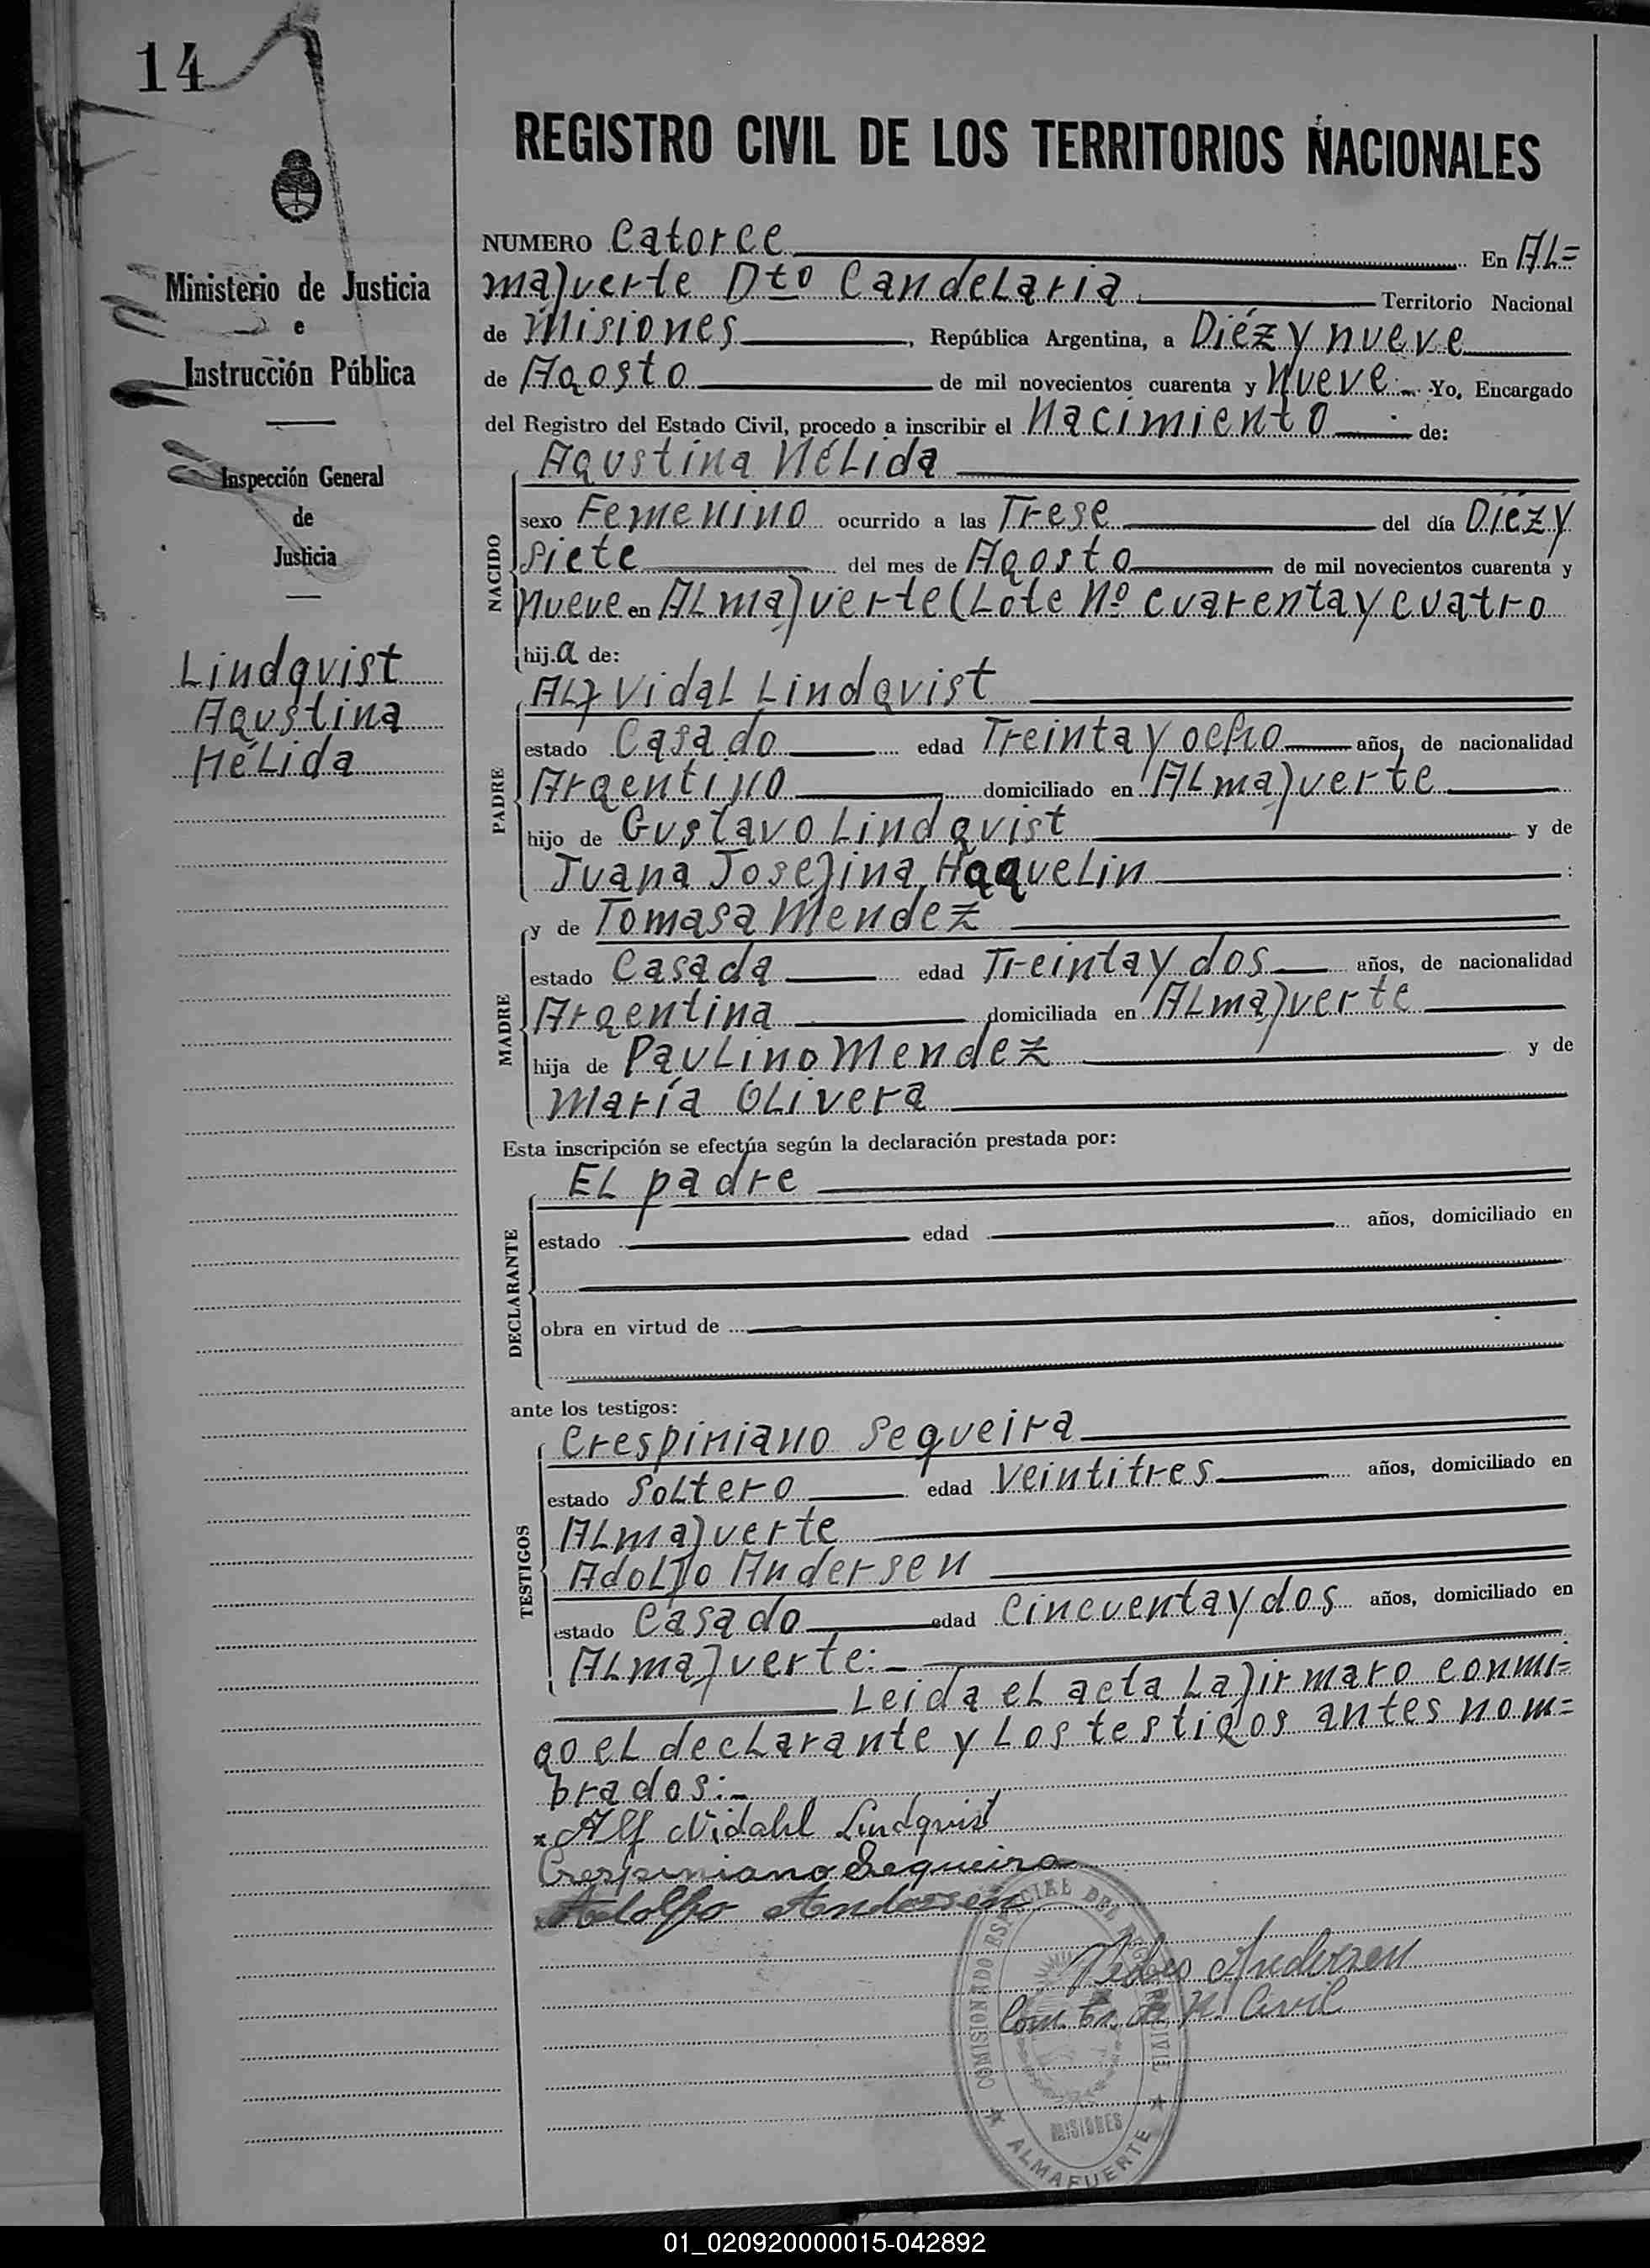 14
Ministerio de Justicia
e
Instrucción Pública
Inspección General
de
Justicia
Lindqvist
Agustina
Nélida
REGISTRO CIVIL DE LOS TERRITORIOS NACIONALES
NUMERO Catorce En AL=
mafuerte Dto Candelaria Territorio Nacional
de Misiones, República Argentina, a Diéz y nueve
de Agosto de mil novecientos cuarenta y Nueve. Yo, Encargado
del Registro del Estado Civil, procedo a inscribir el Nacimiento de:
Agustina Nélida
NACIDO
sexo Femenino ocurrido a las Trese del día Diéz y
siete del mes de Agosto de mil novecientos cuarenta y
nueve en Almafuerte (Lote Nº cuarenta y cuatro
hij.a de:
PADRE
Alf Vidal Lindqvist
estado Casado edad Treinta y ocho años, de nacionalidad
Argentino domiciliado en Almafuerte
hijo de Gustavo Lindqvist y de
Juana Josefina Haquelin :
MADRE
y de Tomasa Mendez
estado Casada edad Treinta y dos años, de nacionalidad
Argentina domiciliada en Almafuerte
hija de Paulino Mendez y de
María Olivera
Esta inscripción se efectúa según la declaración prestada por:
DECLARANTE
El padre
estado edad años, domiciliado en
obra en virtud de
ante los testigos:
TESTIGOS
Crespiniano Sequeira
estado Soltero edad Veintitres años, domiciliado en
Almafuerte
Adolfo Andersen
estado Casado edad Cincuenta y dos años, domiciliado en
Almafuerte:-
Leida el acta la firmaro conmi=
go el declarante y los testigos antes nom=
brados:-
x Alf Vidahl Lindqvist
Crespiniano Sequeira
Adolfo Andersen
Pedro Andersen
Com. Es. de R. Civil
COMISIONADO ESPECIAL DEL REGISTRO CIVIL
MISIONES
ALMAFUERTE
01_020920000015-042892